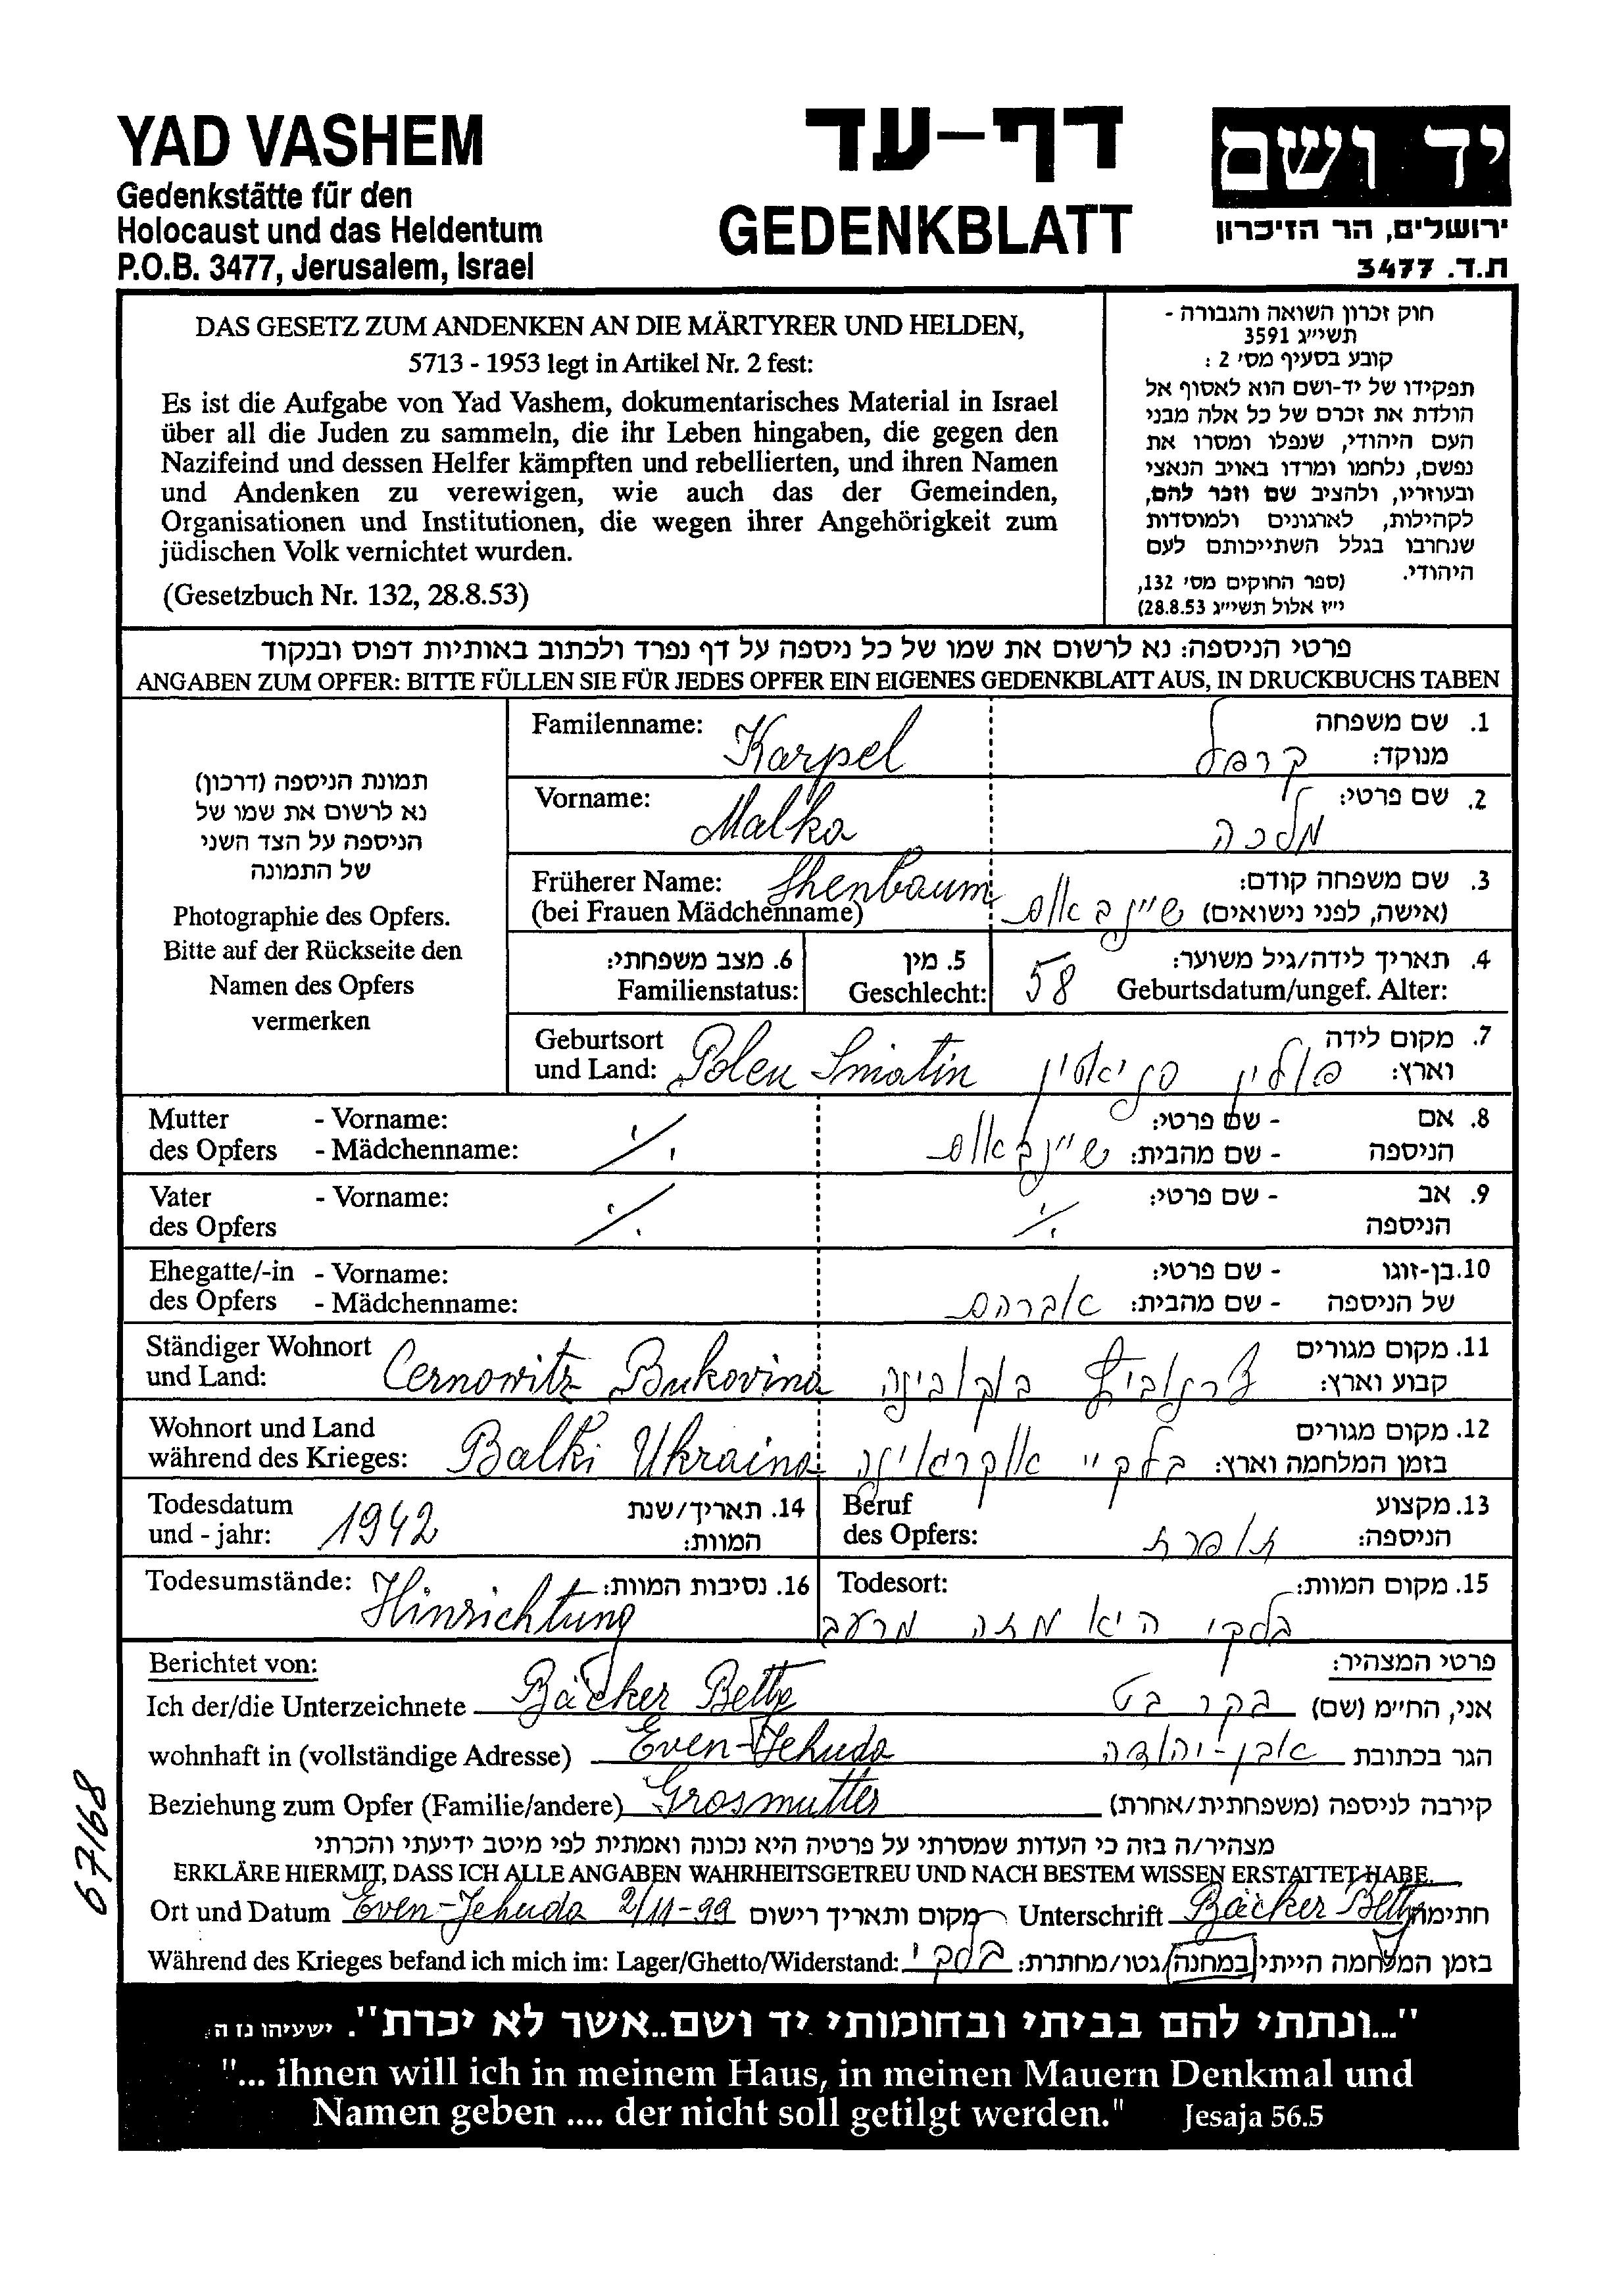 YAD VASHEM
Gedenkstätte für den
Holocaust und das Heldentum
P.O.B. 3477, Jerusalem, Israel
דף-עד
GEDENKBLATT
יד ושם
ירושלים, הר הזיכרון
ת.ד. 3477
DAS GESETZ ZUM ANDENKEN AN DIE MÄRTYRER UND HELDEN,
5713 - 1953 legt in Artikel Nr. 2 fest:
Es ist die Aufgabe von Yad Vashem, dokumentarisches Material in Israel
über all die Juden zu sammeln, die ihr Leben hingaben, die gegen den
Nazifeind und dessen Helfer kämpften und rebellierten, und ihren Namen
und Andenken zu verewigen, wie auch das der Gemeinden,
Organisationen und Institutionen, die wegen ihrer Angehörigkeit zum
jüdischen Volk vernichtet wurden.
(Gesetzbuch Nr. 132, 28.8.53)
חוק זכרון השואה והגבורה -
תשי״ג 3591
קובע בסעיף מס׳ 2 :
תפקידו של יד-ושם הוא לאסוף אל
הולדת את זכרם של כל אלה מבני
העם היהודי, שנפלו ומסרו את
נפשם, נלחמו ומרדו באויב הנאצי
ובעוזריו, ולהציב שם וזכר להם,
לקהילות, לארגונים ולמוסדות
שנחרבו בגלל השתייכותם לעם
היהודי. (ספר החוקים מס׳ 132,
י״ז אלול תשי״ג 28.8.53)
פרטי הניספה: נא לרשום את שמו של כל ניספה על דף נפרד ולכתוב באותיות דפוס ובנקוד
ANGABEN ZUM OPFER: BITTE FÜLLEN SIE FÜR JEDES OPFER EIN EIGENES GEDENKBLATT AUS, IN DRUCKBUCHS TABEN
תמונת הניספה (דרכון)
נא לרשום את שמו של
הניספה על הצד השני
של התמונה
Photographie des Opfers.
Bitte auf der Rückseite den
Namen des Opfers
vermerken
Familenname: Karpel קרפל 1. שם משפחה
מנוקד:
Vorname: Malka מלכה 2. שם פרטי:
Früherer Name: Shenbaum שיינבאום 3. שם משפחה קודם:
(bei Frauen Mädchenname) (אישה, לפני נישואים)
6. מצב משפחתי: 5. מין 4. תאריך לידה/גיל משוער:
Familienstatus: Geschlecht: 58 Geburtsdatum/ungef. Alter:
Geburtsort 7. מקום לידה
und Land: Polen Smiatin פולין סניאטין וארץ:
Mutter - Vorname: ./. - שם פרטי: 8. אם
des Opfers - Mädchenname: שיינבאום - שם מהבית: הניספה
Vater - Vorname: ./. ./. - שם פרטי: 9. אב
des Opfers הניספה
Ehegatte/-in - Vorname: - שם פרטי: 10. בן-זוגו
des Opfers - Mädchenname: אברהם - שם מהבית: של הניספה
Ständiger Wohnort 11. מקום מגורים
und Land: Cernowitz Bukovina צרנוביץ בוקובינה קבוע וארץ:
Wohnort und Land 12. מקום מגורים
während des Krieges: Balki Ukraina בלקיי אוקראינה בזמן המלחמה וארץ:
Todesdatum 14. תאריך/שנת Beruf 13. מקצוע
und - jahr: 1942 המוות: des Opfers: תופרת הניספה:
Todesumstände: Hinrichtung 16. נסיבות המוות: Todesort: 15. מקום המוות:
בלקי היא מתה מרעב
Berichtet von: פרטי המצהיר:
Ich der/die Unterzeichnete Bäcker Betty בקר בטי אני, החי״מ (שם)
wohnhaft in (vollständige Adresse) Even-Jehuda אבן-יהודה הגר בכתובת
Beziehung zum Opfer (Familie/andere) Grosmutter קירבה לניספה (משפחתית/אחרת)
מצהיר/ה בזה כי העדות שמסרתי על פרטיה היא נכונה ואמתית לפי מיטב ידיעתי והכרתי
ERKLÄRE HIERMIT, DASS ICH ALLE ANGABEN WAHRHEITSGETREU UND NACH BESTEM WISSEN ERSTATTET HABE.
Ort und Datum Even-Jehuda 2/11-99 מקום ותאריך רישום Unterschrift Bäcker Betty חתימה
Während des Krieges befand ich mich im: Lager/Ghetto/Widerstand: בלקי בזמן המלחמה הייתי במחנה/גטו/מחתרת:
67/68
"...ונתתי להם בביתי ובחומותי יד ושם..אשר לא יכרת". ישעיהו נז ה
"... ihnen will ich in meinem Haus, in meinen Mauern Denkmal und
Namen geben .... der nicht soll getilgt werden." Jesaja 56.5